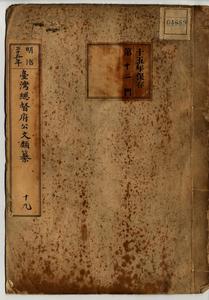 明治
三十五年
臺灣總督府公文類纂
十九
十五年保存
第十二門
04689